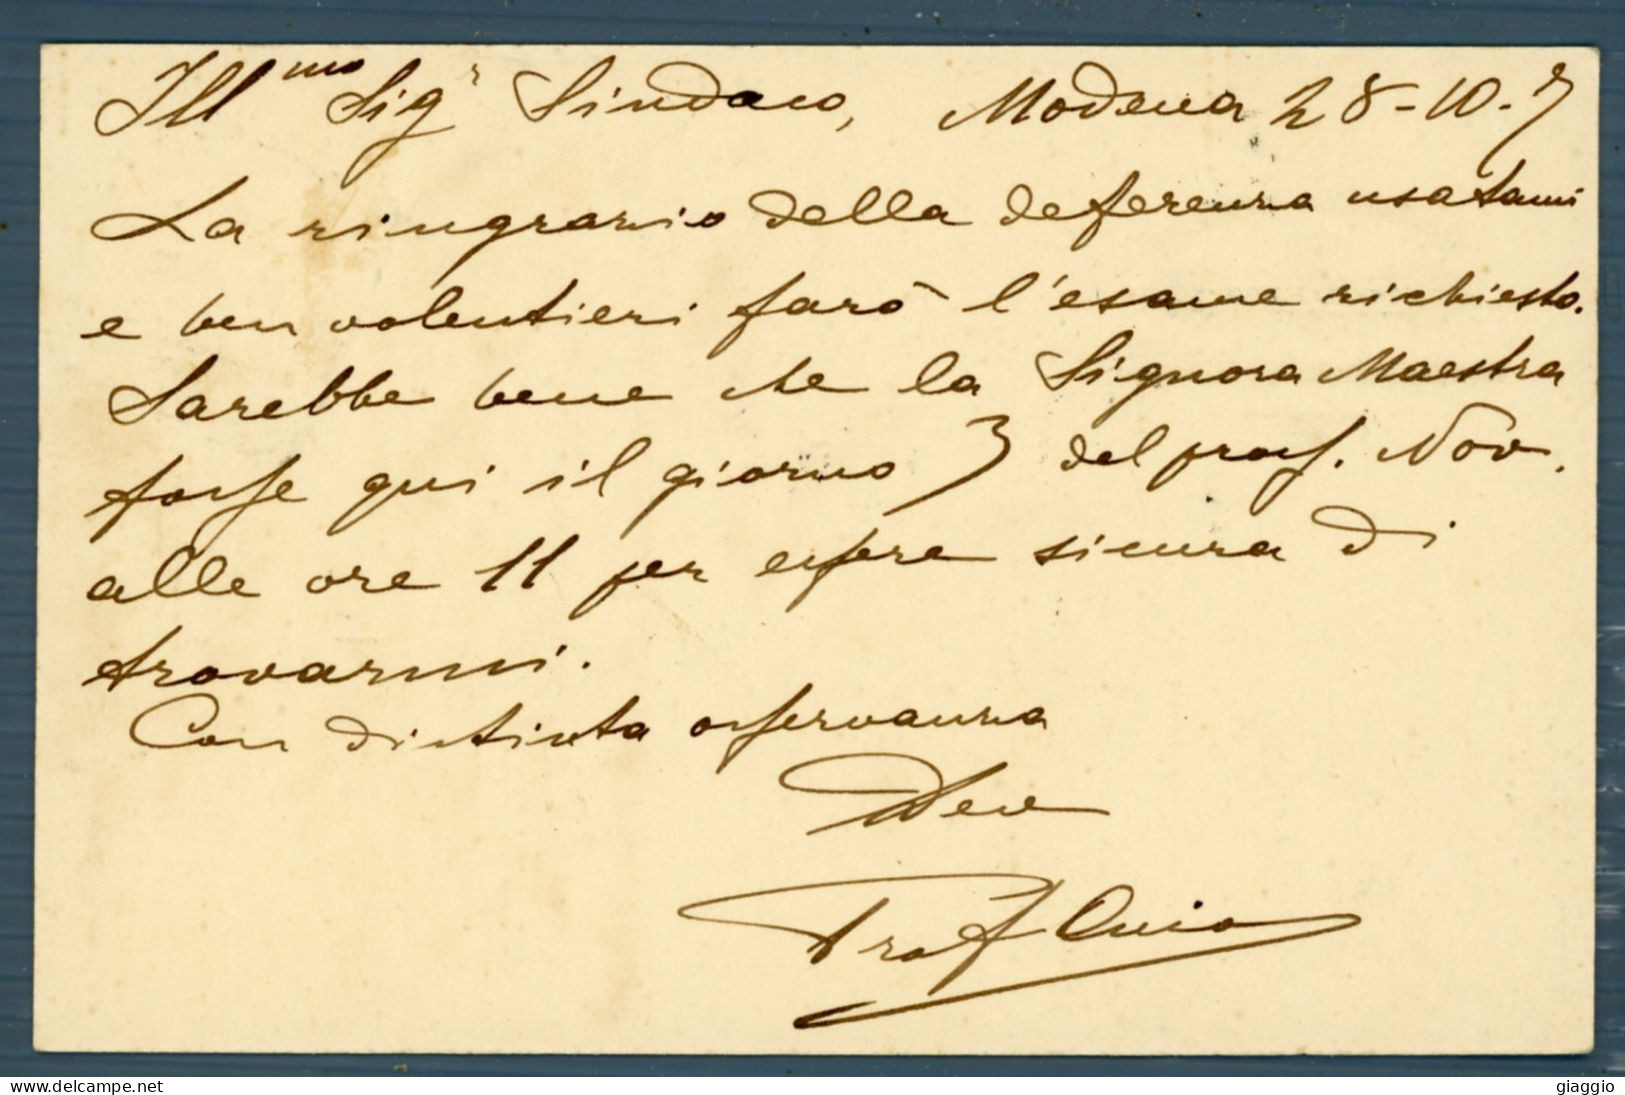 Ill.mo Sig.r Sindaco, Modena 28-10-7
La ringrazio della deferenza usatami
e ben volentieri farò l'esame richiesto.
Sarebbe bene che la Signora Maestra
fosse qui il giorno 3 del pross. Nov.
alle ore 11 per essere sicura di
trovarmi.
Con distinta osservanza
Dev
Prof
giaggio
delcampe.net